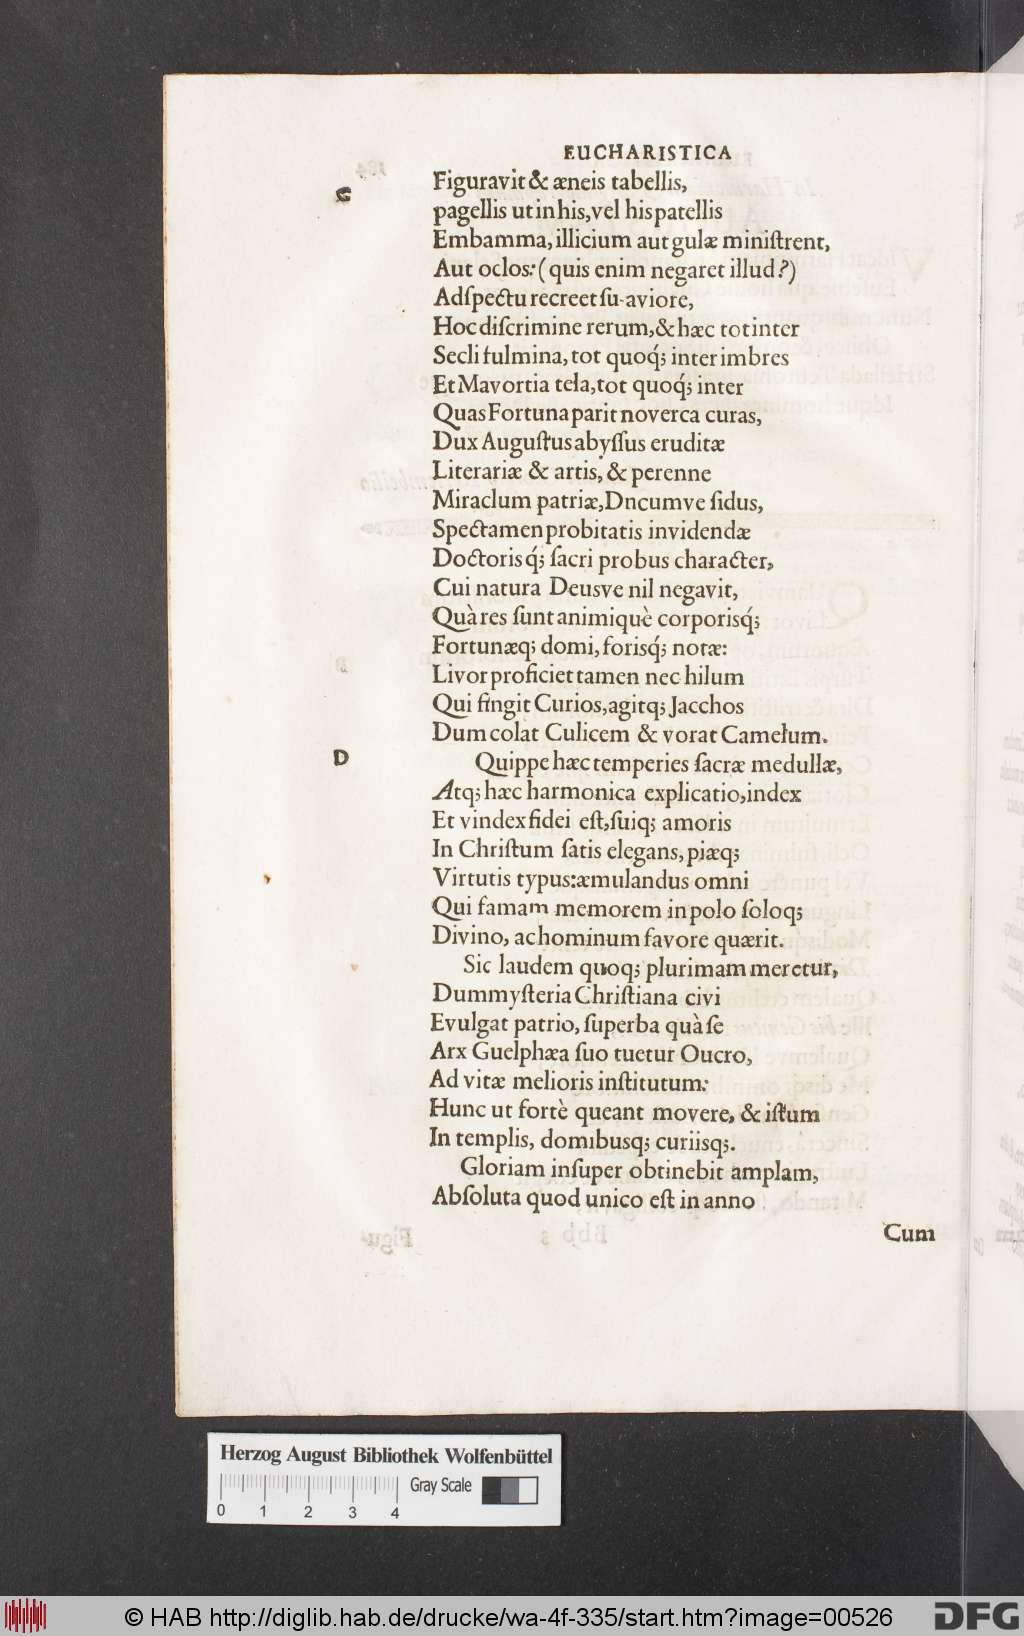 EUCHARISTICA
C
Figuravit & æneis tabellis,
pagellis ut in his, vel his patellis
Embamma, illicium aut gulæ miniſtrent,
Aut oclos: (quis enim negaret illud?)
Adſpectu recreet ſu-aviore,
Hoc diſcrimine rerum, & hæc tot inter
Secli fulmina, tot quoq́; inter imbres
Et Mavortia tela, tot quoq́; inter
Quas Fortuna parit noverca curas,
Dux Auguſtus abyſſus eruditæ
Literariæ & artis, & perenne
Miraclum patriæ, Dncumve ſidus,
Spectamen probitatis invidendæ
Doctoris q́; ſacri probus character,
Cui natura Deusve nil negavit,
Quà res ſunt animiquè corporisq́;
Fortunæq; domi, forisq́; notæ:
Livor proficiet tamen nec hilum
Qui fingit Curios, agitq; Jacchos
Dum colat Culicem & vorat Camelum.
D
Quippe hæc temperies ſacræ medullæ,
Atq; hæc harmonica explicatio, index
Et vindex fidei eſt, ſuiq; amoris
In Chriſtum ſatis elegans, piæq;
Virtutis typus: æmulandus omni
Qui famam memorem in polo ſoloq;
Divino, ac hominum favore quærit.
Sic laudem quoq; plurimam meretur,
Dum myſteria Chriſtiana civi
Evulgat patrio, ſuperba quà ſe
Arx Guelphæa ſuo tuetur Oucro,
Ad vitæ melioris inſtitutum:
Hunc ut fortè queant movere, & iſtum
In templis, domibusq; curiisq;.
Gloriam inſuper obtinebit amplam,
Abſoluta quod unico eſt in anno
Cum
Herzog August Bibliothek Wolfenbüttel
Gray Scale
0 1 2 3 4
© HAB http://diglib.hab.de/drucke/wa-4f-335/start.htm?image=00526
DFG